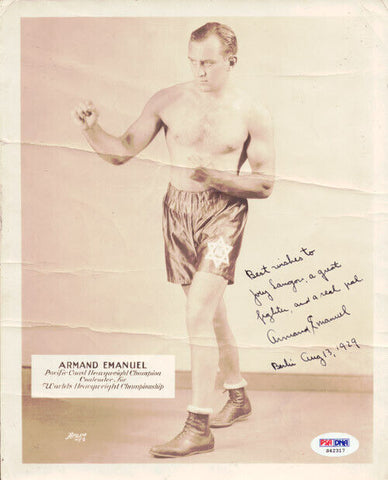 Best wishes to
Joey Sangor, a great
fighter, and a real pal
Armand Emanuel
Aug 13, 1929
ARMAND EMANUEL
Pacific Coast Heavyweight Champion
Contender for
Worlds Heavyweight Championship
PSA DNA
S42317